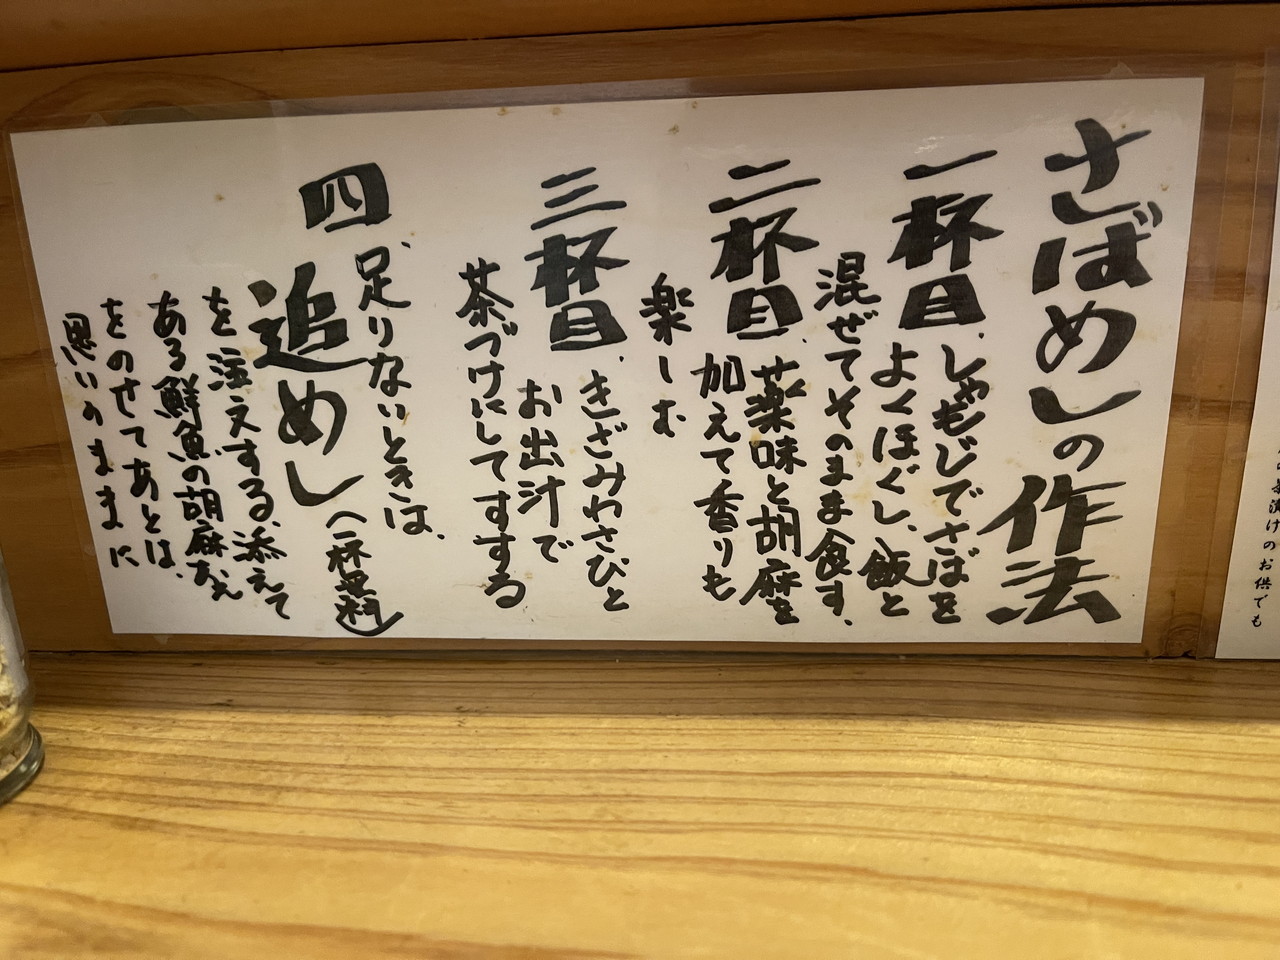 さばめしの作法
一杯目、しゃもじでさばを
よくほぐし、飯と
混ぜてそのまま食す、
二杯目、薬味と胡麻を
加えて香りも
楽しむ
三杯目、きざみわさびと
お出汁で
茶づけにしてすする
四、足りないときは、
追めし(一杯無料)
を注文する、添えて
ある鮮魚の胡麻あえ
をのせてあとは、
思いのままに
漬けのお供でも